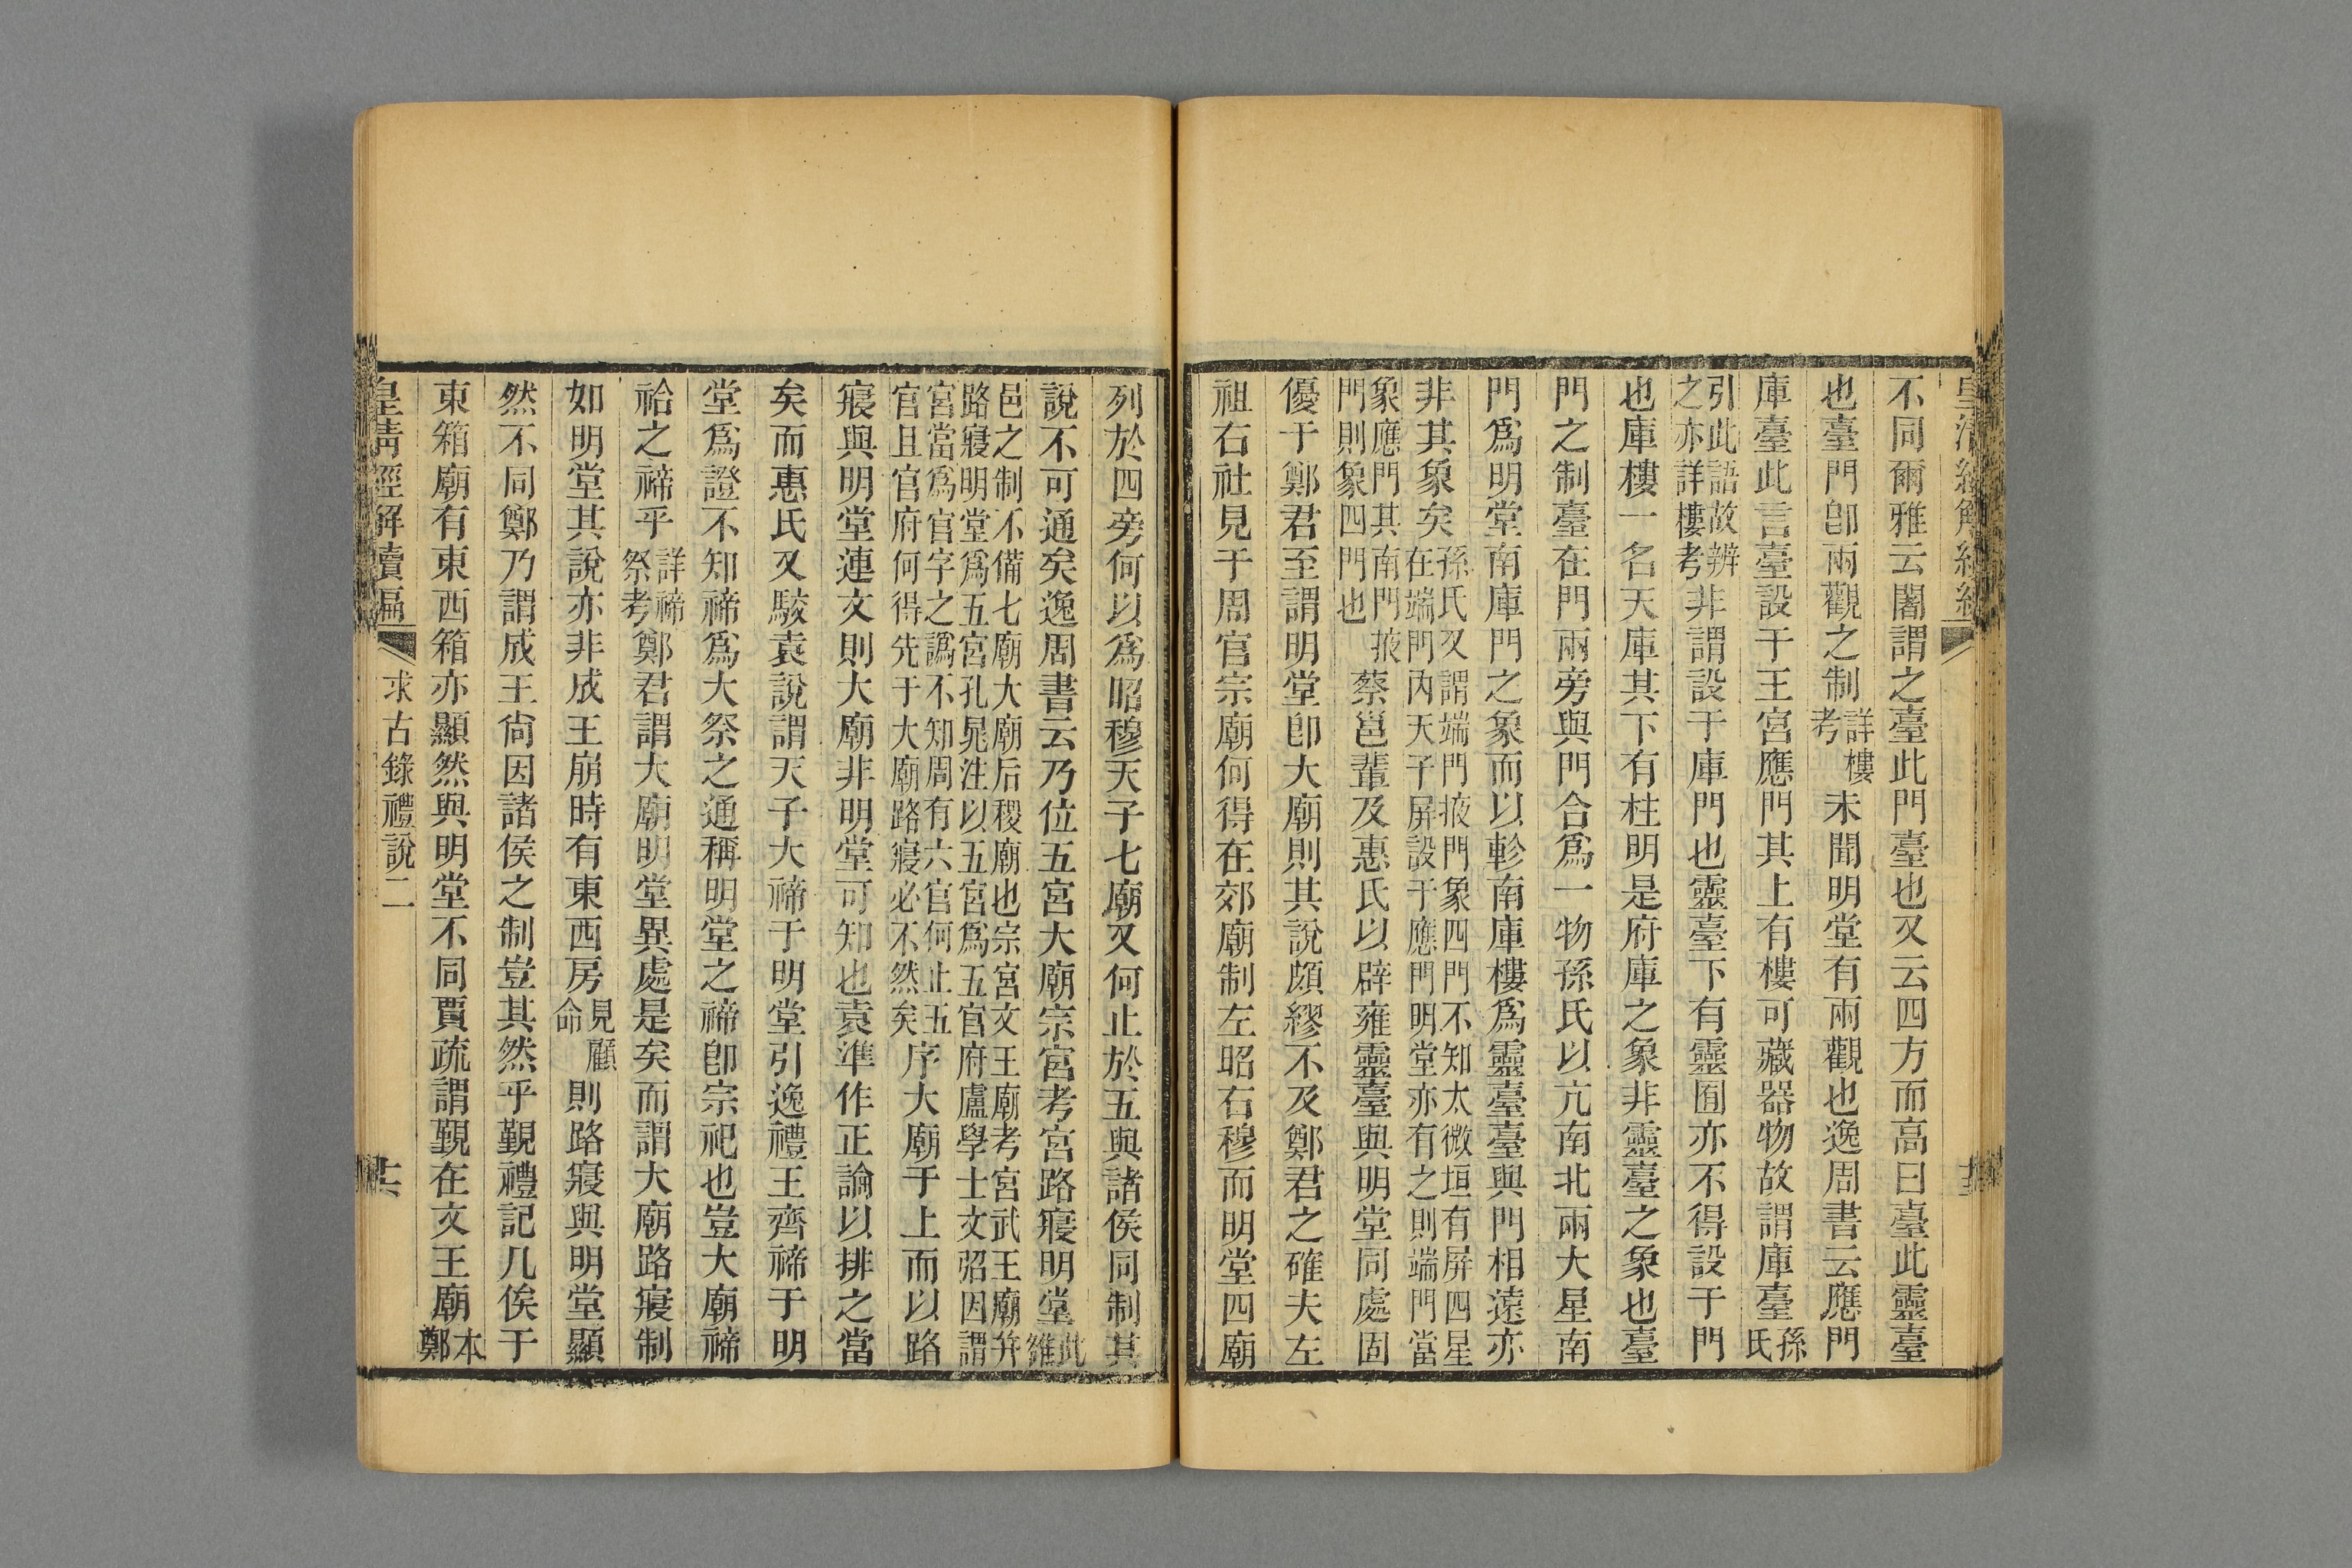 不同爾雅云闍謂之臺此門臺也又云四方而高曰臺此靈臺
也臺門卽兩觀之制詳樓考未聞明堂有兩觀也逸周書云應門
庫臺此言臺設于王宮應門其上有樓可藏器物故謂庫臺孫氏
引此語故辨之亦詳樓考非謂設于庫門也靈臺下有靈囿亦不得設于門
也庫樓一名天庫其下有柱明是府庫之象非靈臺之象也臺
門之制臺在門兩旁與門合爲一物孫氏以亢南北兩大星南
門爲明堂南庫門之象而以軫南庫樓爲靈臺臺與門相遠亦
非其象矣孫氏又謂端門掖門象四門不知太微垣有屏四星在端門內天子屏設于應門明堂亦有之則端門當
象應門其南門掖門則象四門也蔡邕輩及惠氏以辟雍靈臺與明堂同處固
優于鄭君至謂明堂卽大廟則其說頗繆不及鄭君之確夫左
祖右社見于周官宗廟何得在郊廟制左昭右穆而明堂四廟
列於四旁何以爲昭穆天子七廟又何止於五與諸侯同制其
說不可通矣逸周書云乃位五宮大廟宗宮考宮路寢明堂此雒
邑之制不備七廟大廟后稷廟也宗宮文王廟考宮武王廟幷路寢明堂爲五宮孔晁注以五宮爲五官府盧學士文弨因謂
宮當爲官字之譌不知周有六官何止五官且官府何得先于大廟路寢必不然矣序大廟于上而以路
寢與明堂連文則大廟非明堂可知也袁準作正論以排之當
矣而惠氏又駁袁說謂天子大禘于明堂引逸禮王齊禘于明
堂爲證不知禘爲大祭之通稱明堂之禘卽宗祀也豈大廟禘
祫之禘乎詳禘祭考鄭君謂大廟明堂異處是矣而謂大廟路寢制
如明堂其說亦非成王崩時有東西房見顧命則路寢與明堂顯
然不同鄭乃謂成王尙因諸侯之制豈其然乎覲禮記几俟于
東箱廟有東西箱亦顯然與明堂不同賈疏謂覲在文王廟本鄭
皇清經解續編 求古錄禮說二